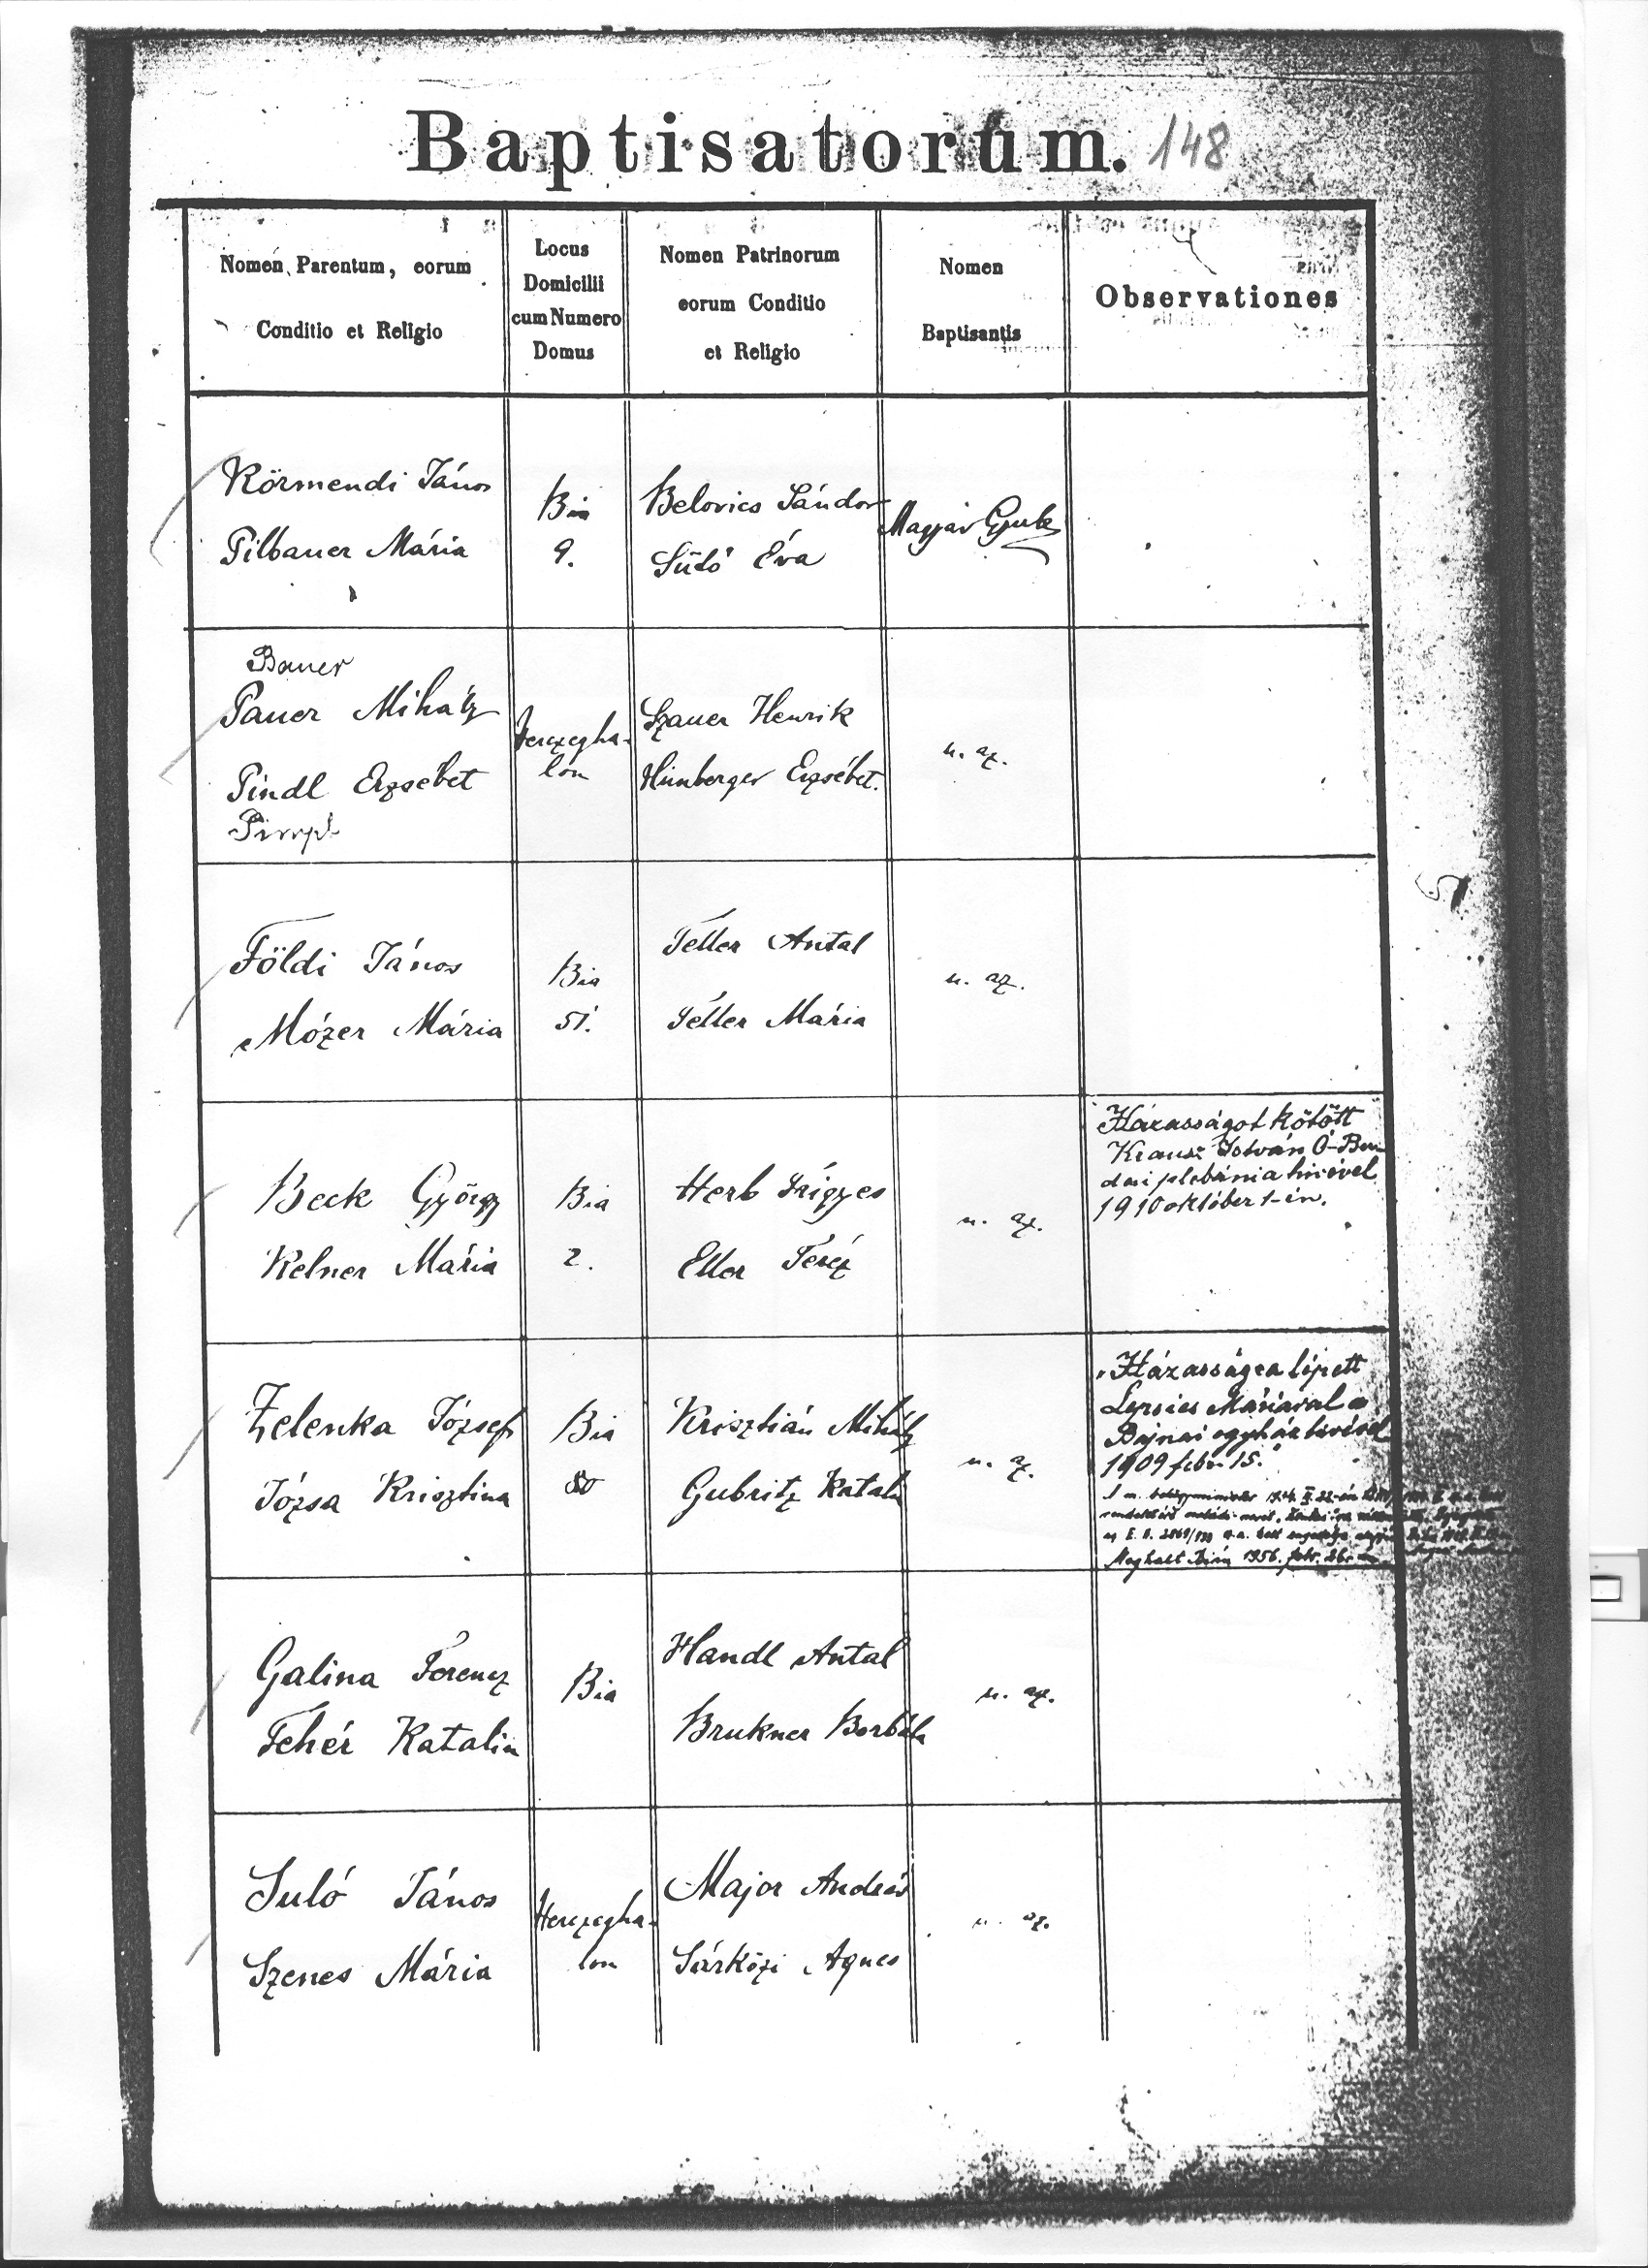 Baptisatorum. 148
Nomen Parentum, eorum
Conditio et Religio
Locus
Domicilii
cum Numero
Domus
Nomen Patrinorum
eorum Conditio
et Religio
Nomen
Baptisantis
Observationes
Körmendi János
Pilbauer Mária
Bia
9.
Belovics Sándor
Sütő Éva
Magyar Gyula
Bauer
Pauer Mihály
Pindl Erzsébet
Herczegha-
lon
Szauer Henrik
Hünberger Erzsébet.
u. az.
Földi János
Mózer Mária
Bia
51.
Teller Antal
Teller Mária
u. az.
Beck György
Kelner Mária
Bia
2.
Herb Frigyes
Eller Teréz
u. az.
Házasságot kötött
Krausz István Ó-Bu-
dai plebánia hívével
1910 október 1-én.
Zelenka József
Józsa Krisztina
Bia
80
Krisztián Mihály
Gubritz Katalin
u. az.
Házasságra lépett
Máriával a
Bajnai egyház hívével
1909 febr. 15.
Meghalt 1956. febr. 26.
Galina Ferencz
Fehér Katalin
Bia
Handl Antal
Brukner Borbála
u. az.
Suló János
Szenes Mária
Herczegha-
lon
Major András
Sárközi Agnes
u. az.